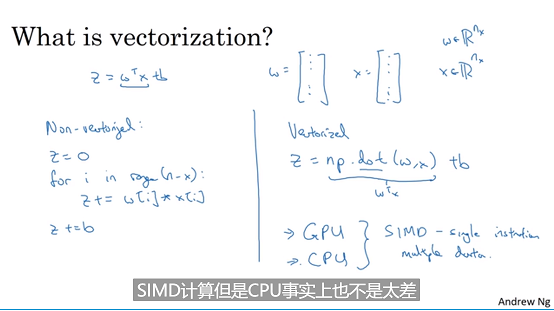 What is vectorization?
z = wᵀx + b
w = [⋮] x = [⋮]
w ∈ ℝⁿˣ
x ∈ ℝⁿˣ
Non-vectorized:
z = 0
for i in range(n-x):
z += w[i] * x[i]
z += b
Vectorized
z = np.dot(w,x) + b
wᵀx
→ GPU
→ CPU
} SIMD - single instruction
multiple data.
SIMD计算但是CPU事实上也不是太差
Andrew Ng